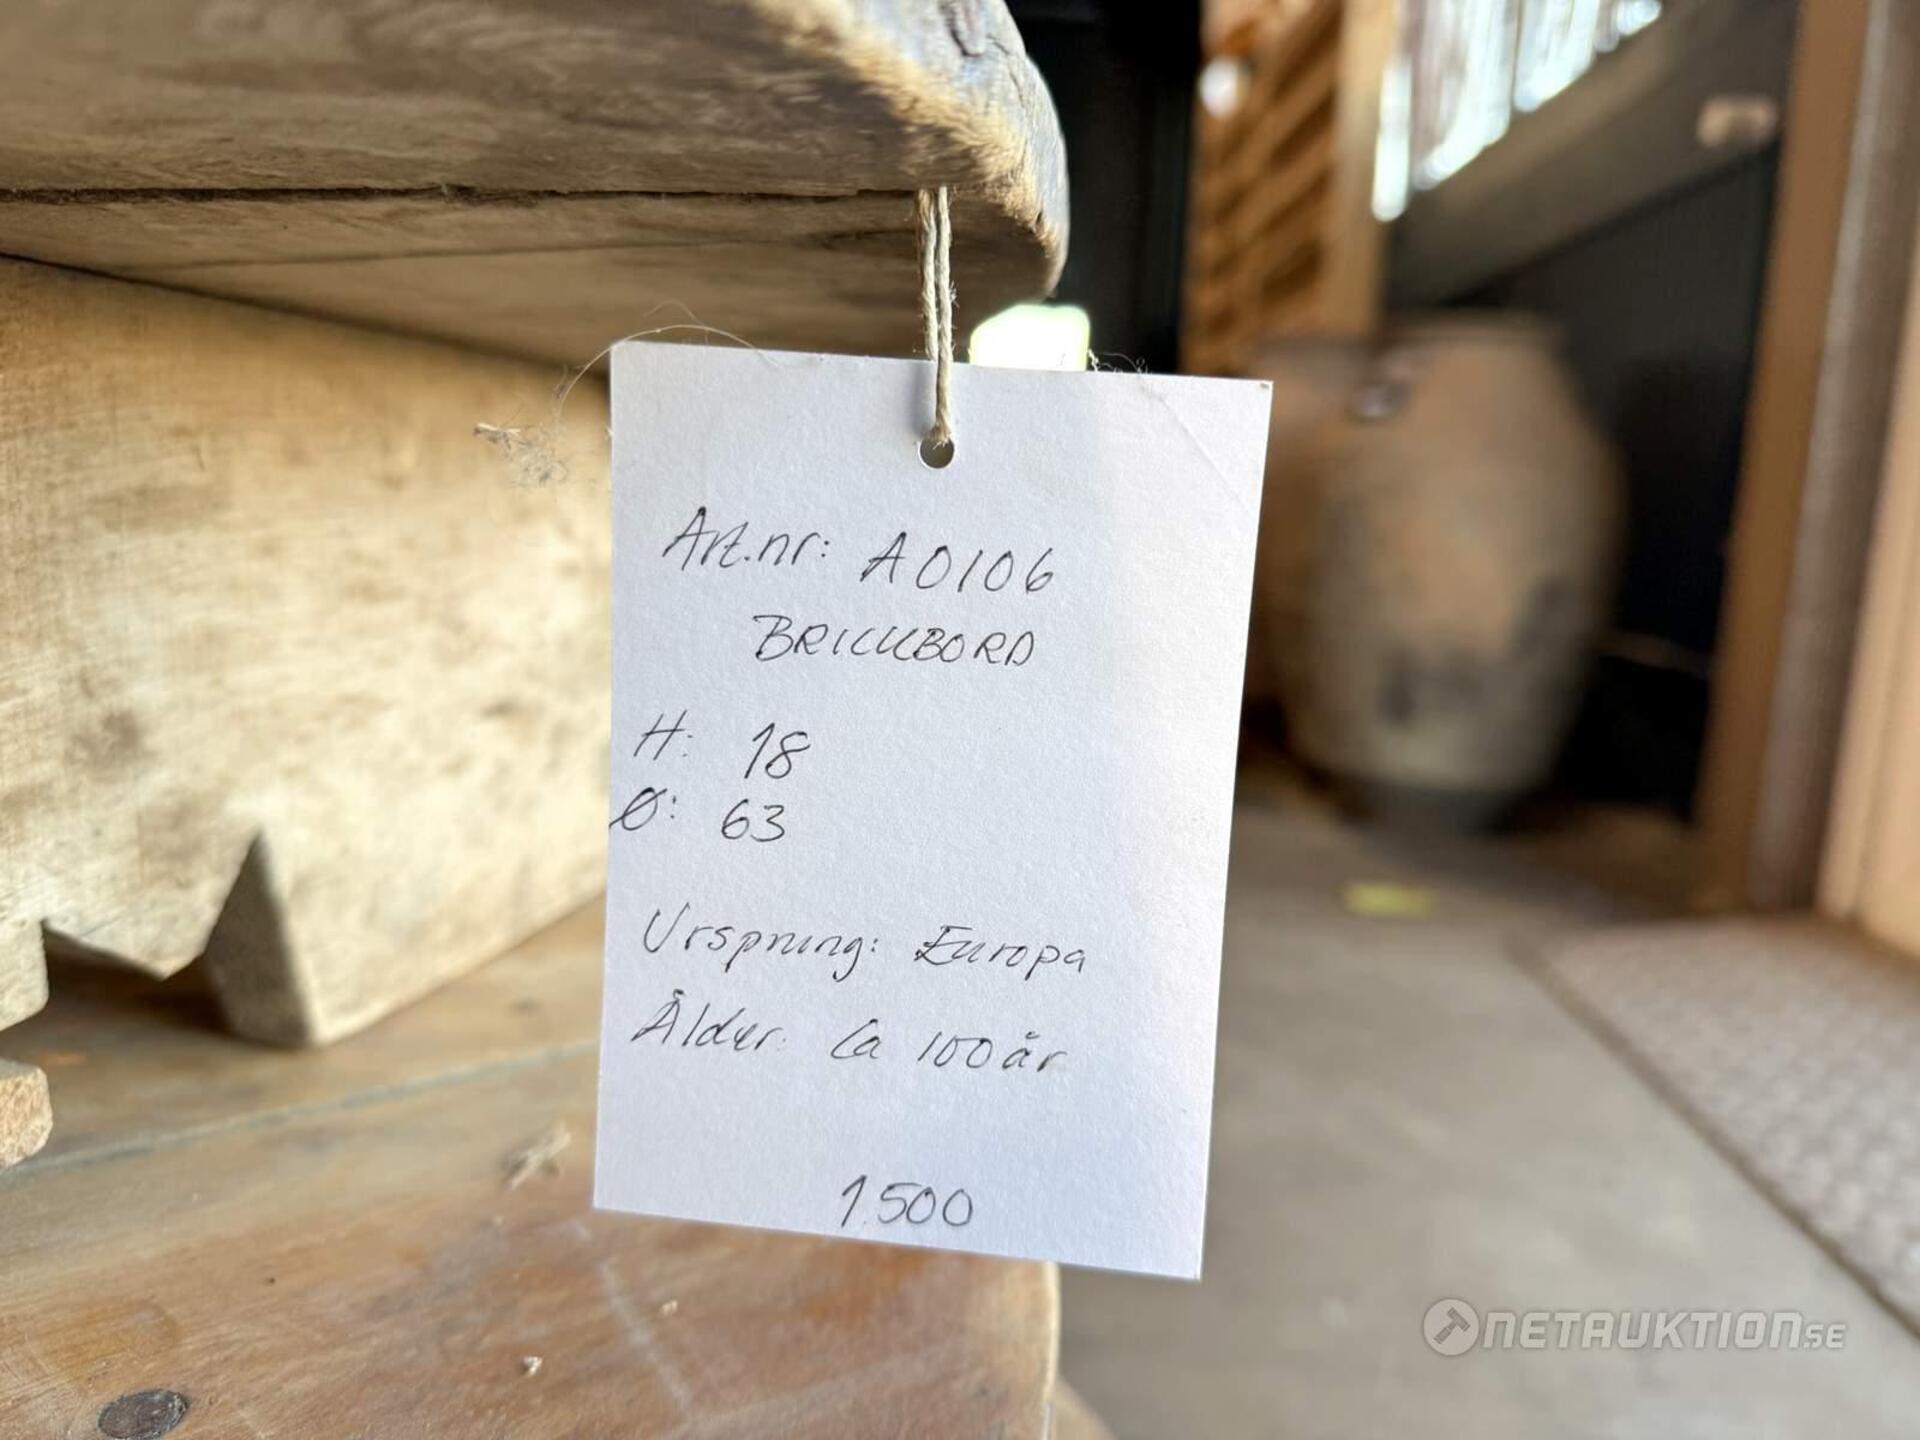 Art.nr: A0106
BRICKBORD
H: 18
Ø: 63
Ursprung: Europa
Ålder: Ca 100 år
1.500
NETAUKTION.SE